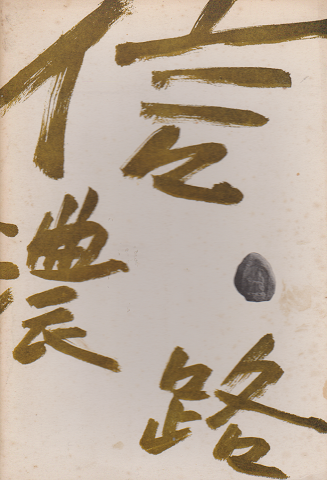 信濃路